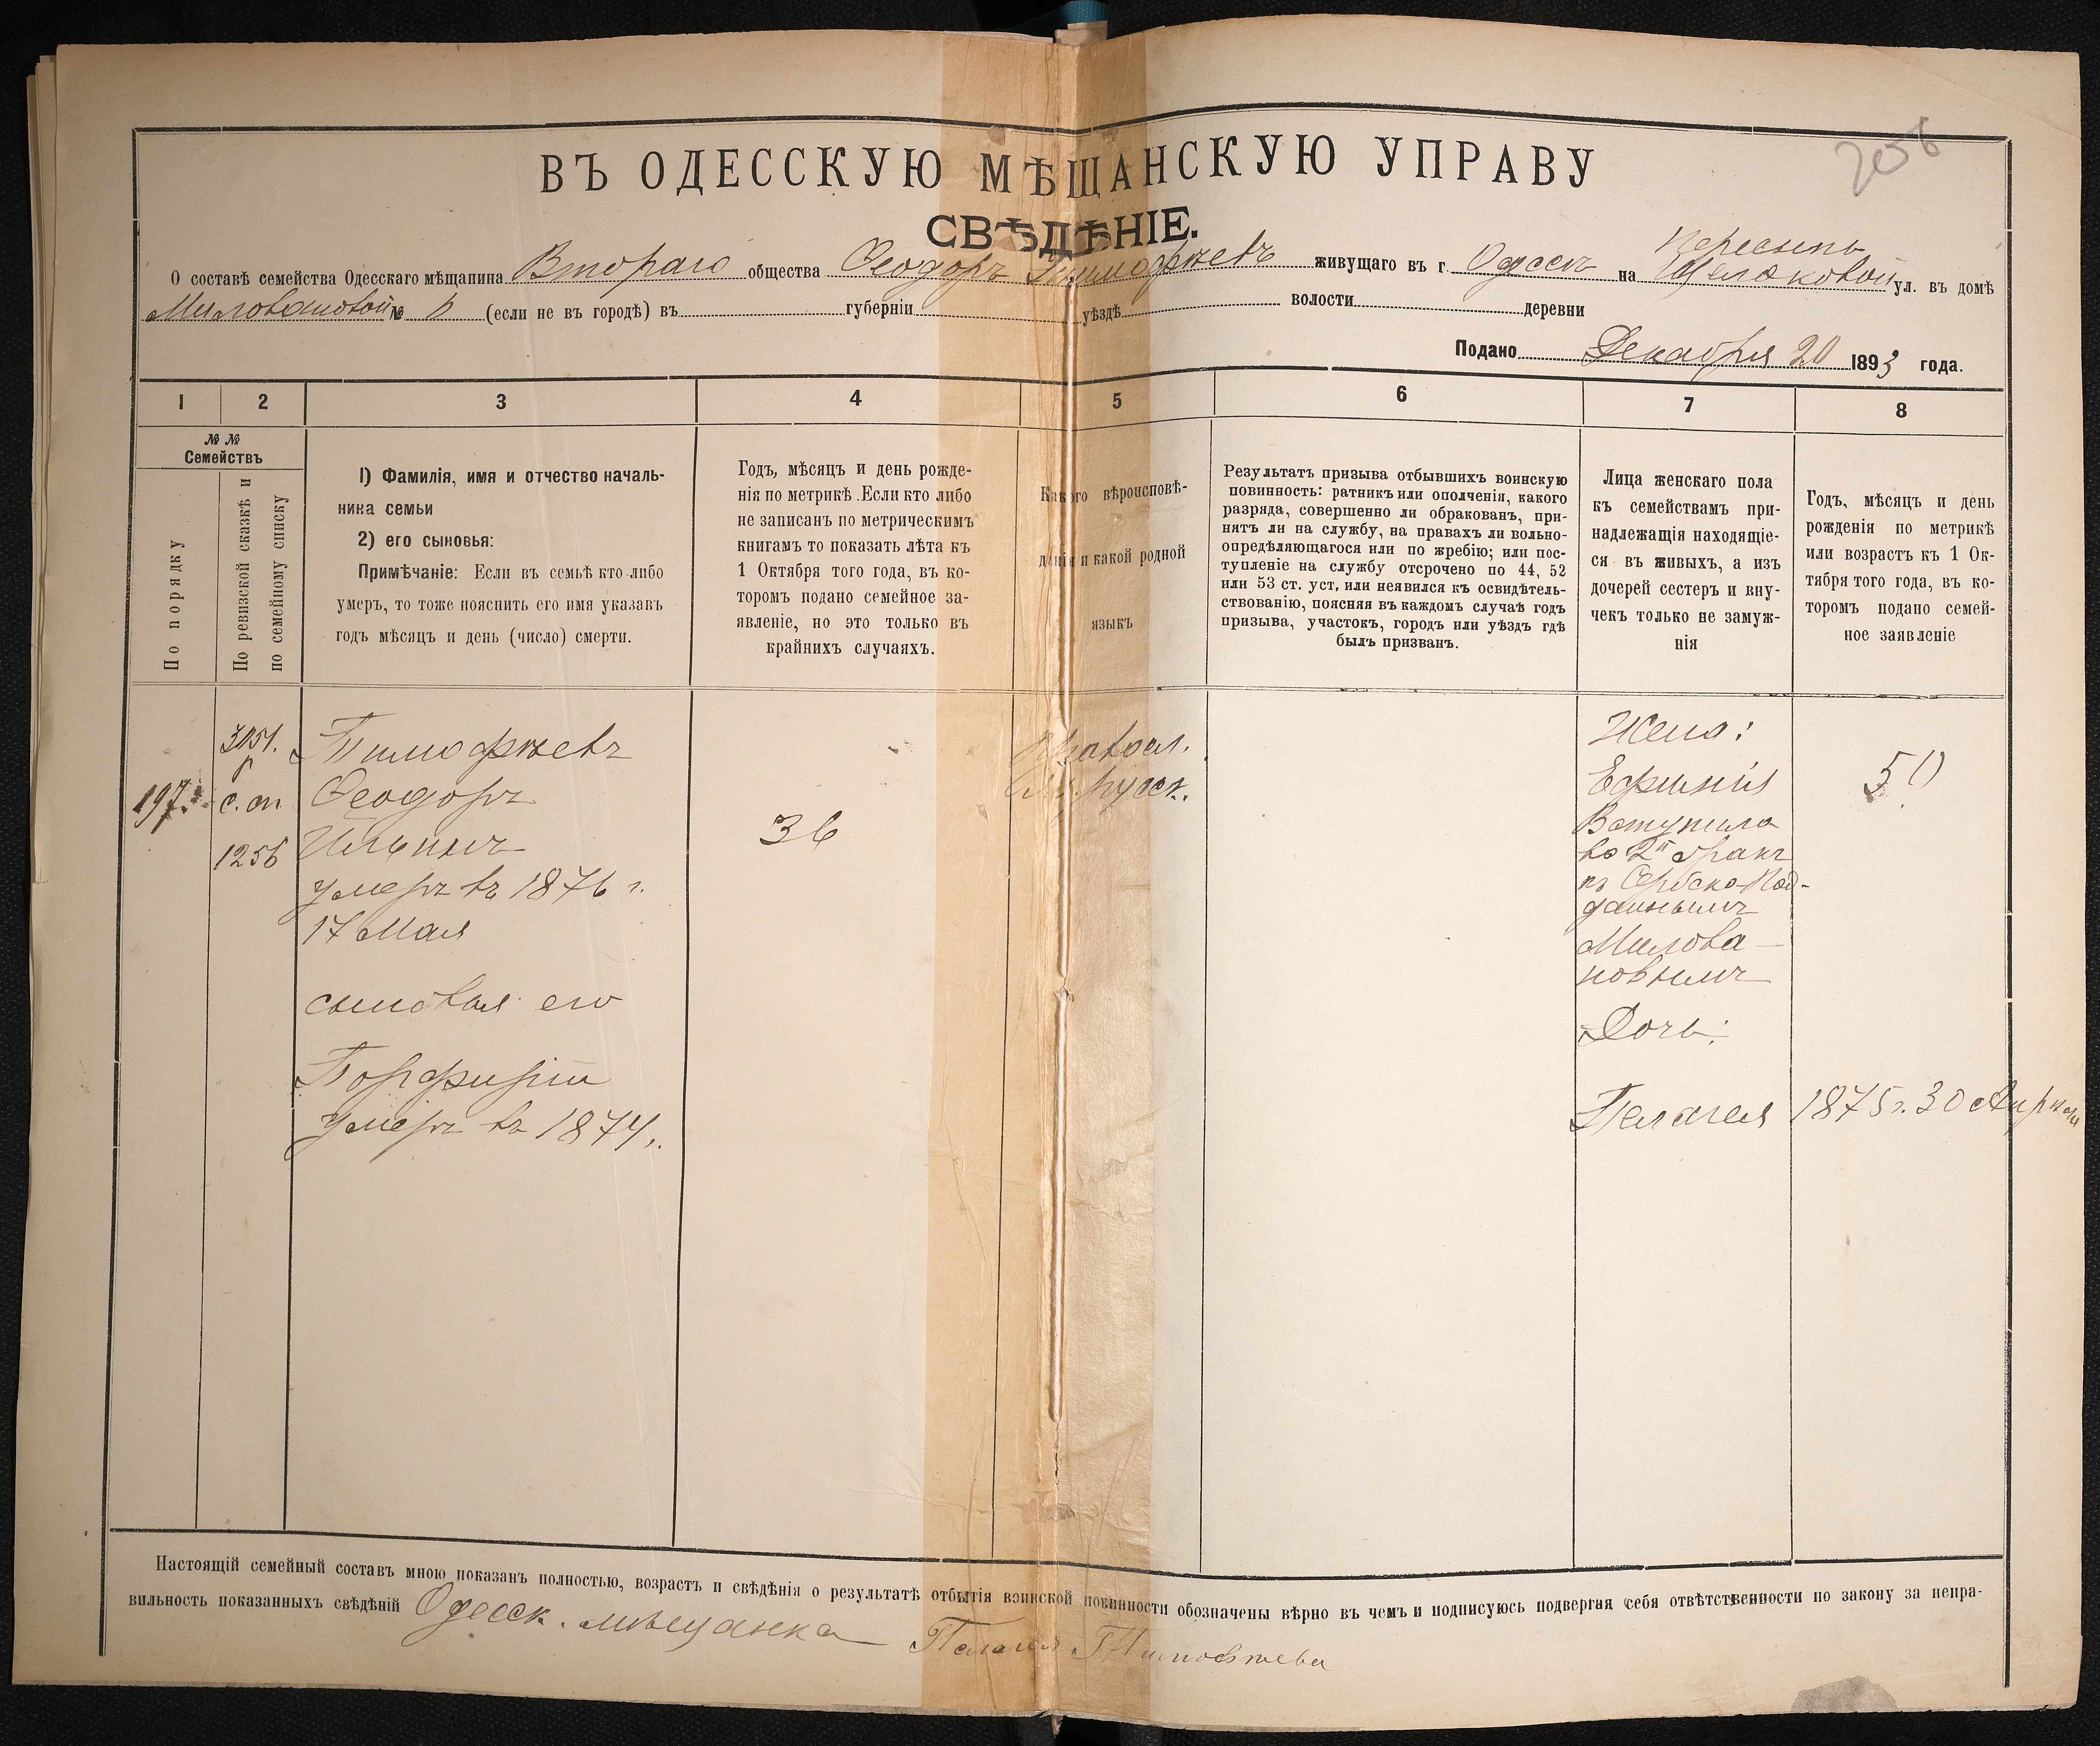 205б
ВЪ ОДЕССКУЮ МѢЩАНСКУЮ УПРАВУ
СВѢДѢНІЕ.
О составѣ семейства Одесскаго мѣщанина Втораго общества Ѳеодоръ Тимофѣевъ живущаго въ г. Одессѣ на Пересыпь Щелаковой ул. въ домѣ
Миловановой № 6 (если не въ городѣ) въ губерніи уѣздѣ волости деревни
Подано Декабря 20 1893 года.
1 2 3 4 5 6 7 8
№ № Семействъ
По порядку
По ревизской сказкѣ и
по семейному списку
1) Фамилія, имя и отчество началь-
ника семьи
2) его сыновья:
Примѣчаніе: Если въ семьѣ кто-либо
умеръ, то тоже пояснить его имя указавъ
годъ мѣсяцъ и день (число) смерти.
Годъ, мѣсяцъ и день рожде-
нія по метрикѣ. Если кто либо
не записанъ по метрическимъ
книгамъ то показать лѣта къ
1 Октября того года, въ ко-
торомъ подано семейное за-
явленіе, но это только въ
крайнихъ случаяхъ.
Какого вѣроисповѣ-
данія и какой родной
языкъ
Результатъ призыва отбывшихъ воинскую
повинность: ратникъ или ополченія, какого
разряда, совершенно ли обракованъ, при-
нятъ ли на службу, на правахъ ли вольно-
опредѣляющагося или по жребію; или пос-
тупленіе на службу отсрочено по 44, 52
или 53 ст. уст, или неявился къ освидѣтель-
ствованію, поясняя въ каждомъ случаѣ годъ
призыва, участокъ, городъ или уѣздъ гдѣ
былъ призванъ.
Лица женскаго пола
къ семействамъ при-
надлежащія находящіе-
ся въ живыхъ, а изъ
дочерей сестеръ и вну-
чекъ только не замуж-
нія
Годъ, мѣсяцъ и день
рожденія по метрикѣ
или возрастъ къ 1 Ок-
тября того года, въ ко-
торомъ подано семей-
ное заявленіе
197.
с. сп
1256
Тимофѣевъ
Ѳеодоръ
Ильинъ
умеръ въ 1876 г.
17 Мая
сыновья его
Порфирій
умеръ въ 1874 г.
36
Правосл.
русск.
Жена:
Ефимія
Вступила
во 2й бракъ
съ Сербско-Под-
даннымъ
Милова-
новымъ
Дочь:
Пелагея
50
1875 г. 30 Апрѣля
Настоящій семейный составъ мною показанъ полностью, возрастъ и свѣдѣнія о результатѣ отбытія воинской повинности обозначены вѣрно въ чемъ и подписуюсь подвергая себя отвѣтственности по закону за непра-
вильность показанныхъ свѣдѣній Одесск. мѣщанка Пелагія Тимофеева